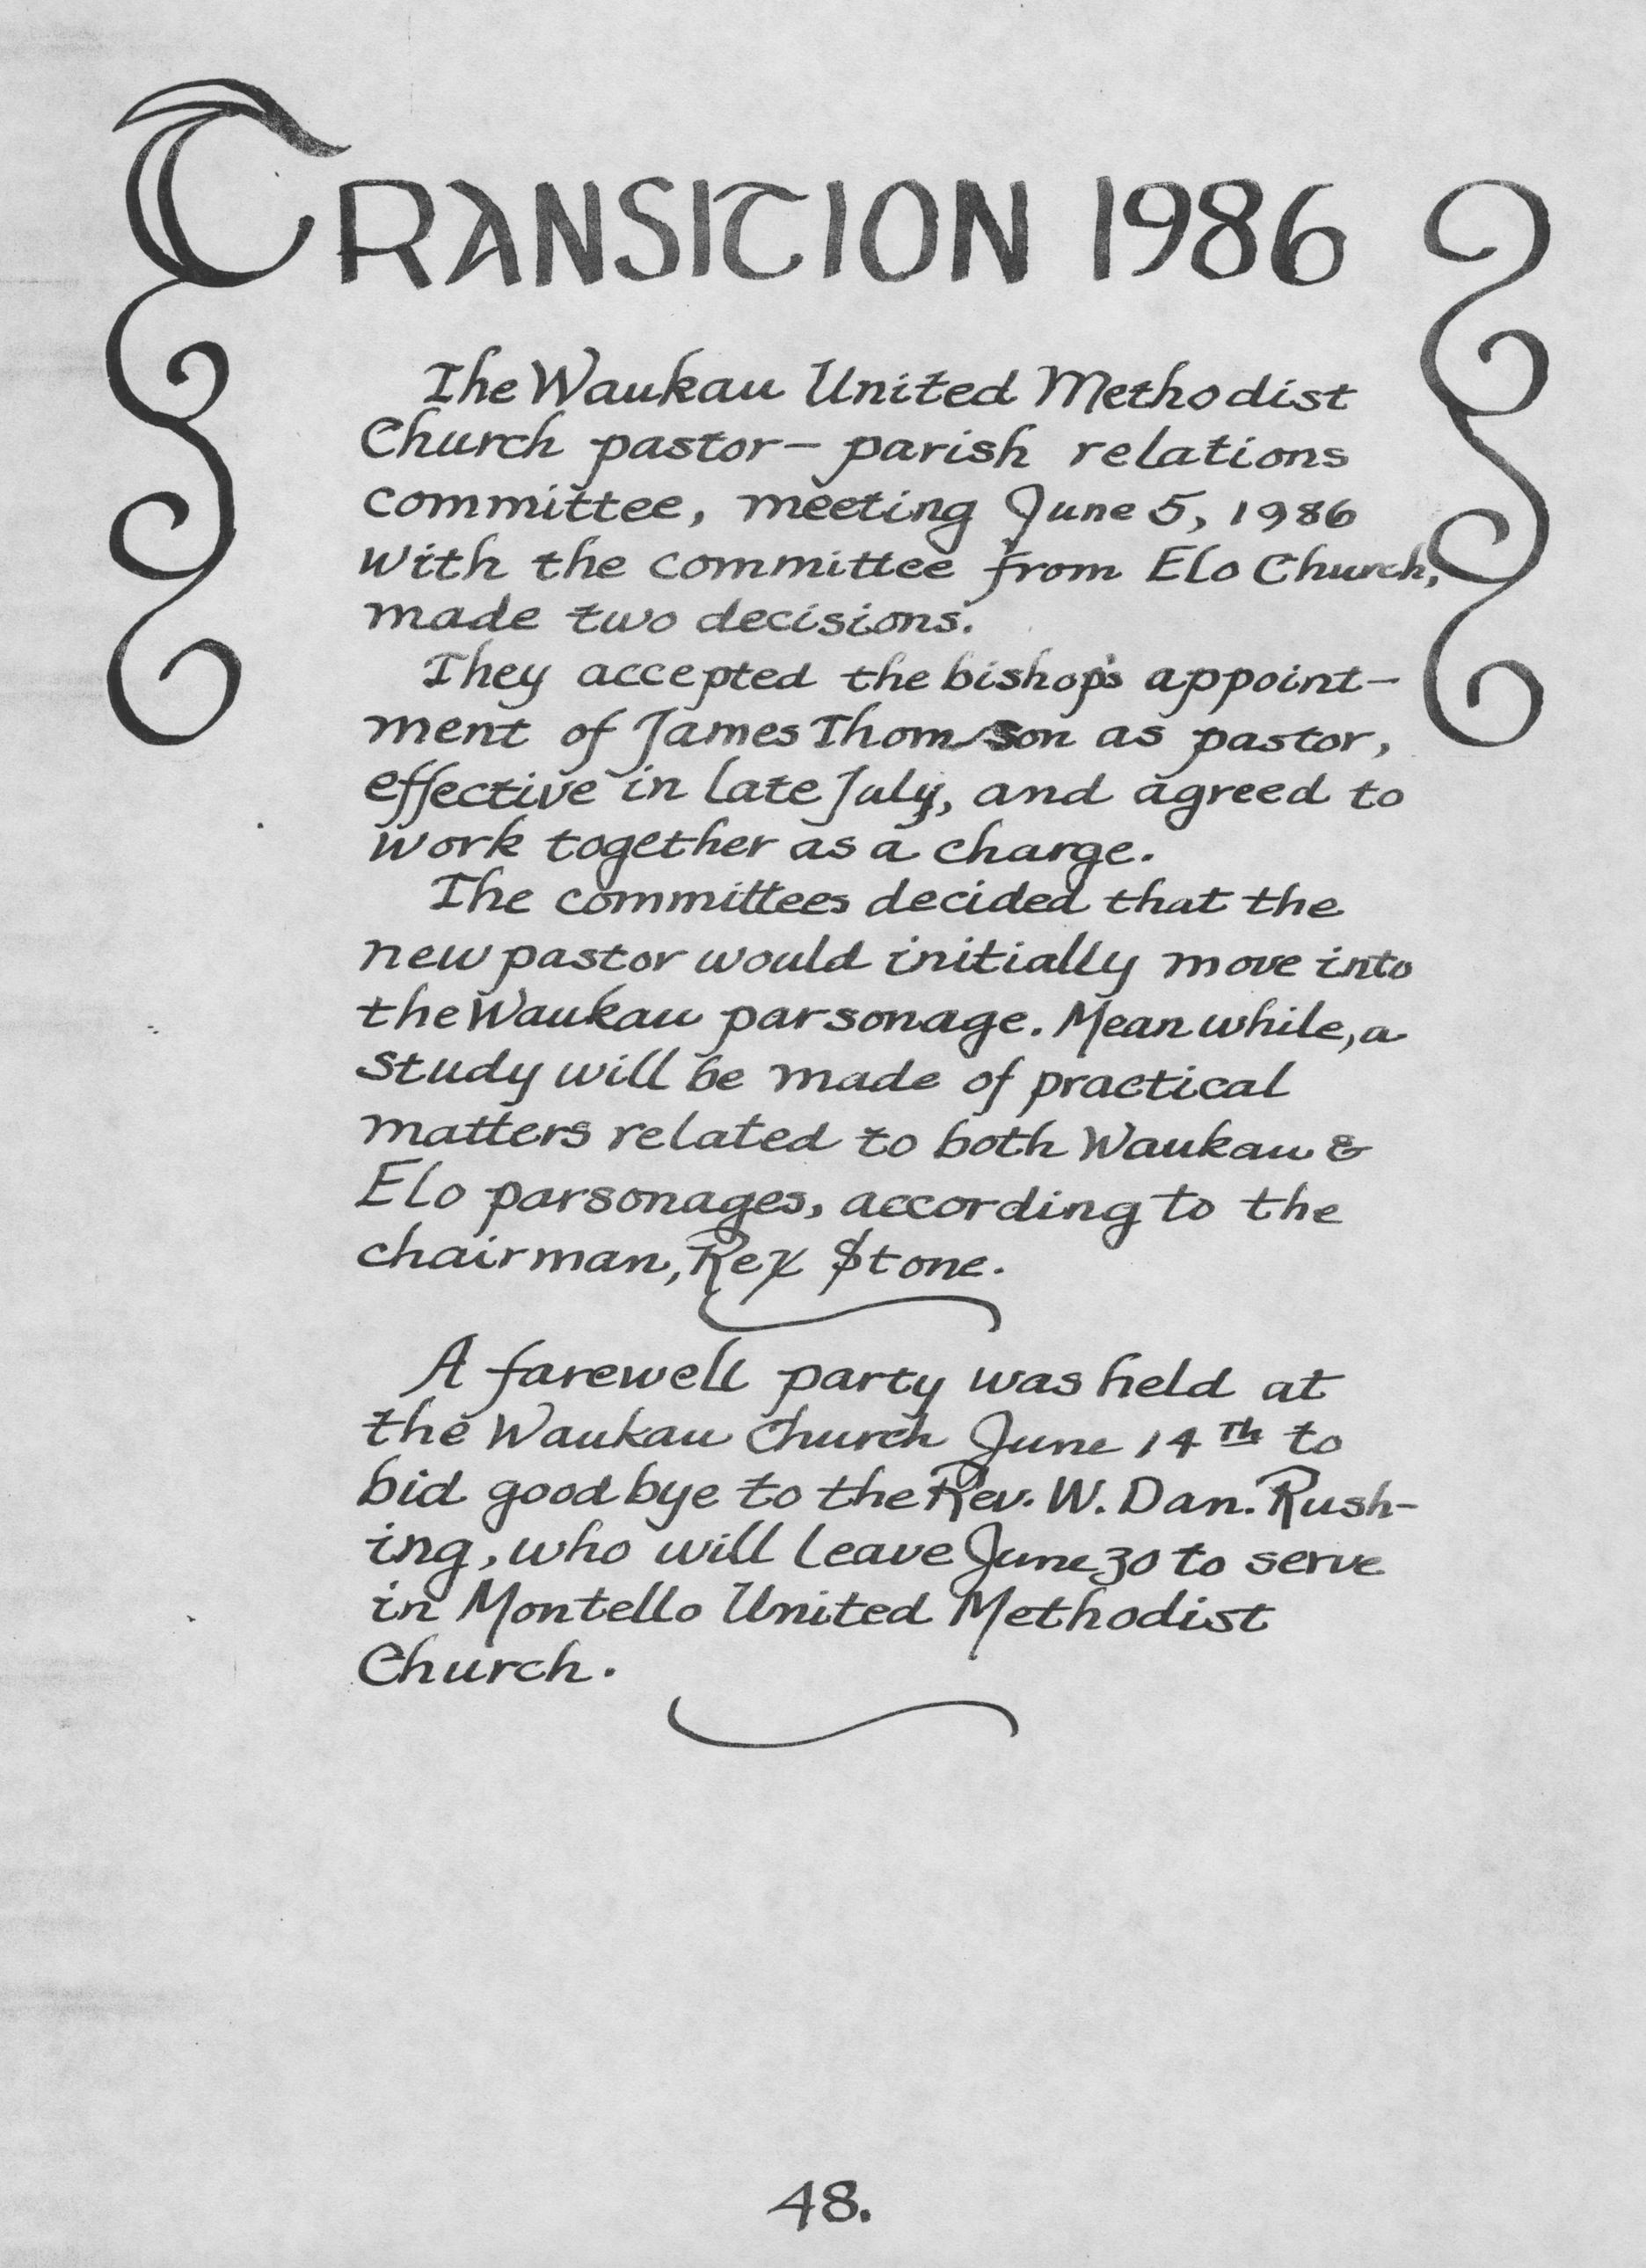 TRANSITION 1986
The Waukau United Methodist
Church pastor- parish relations
committee, meeting June 5, 1986
with the committee from Elo Church,
made two decisions.
They accepted the bishop's appoint-
ment of James Thomson as pastor,
effective in late July, and agreed to
work together as a charge.
The committees decided that the
new pastor would initially move into
the Waukau parsonage. Meanwhile, a
study will be made of practical
matters related to both Waukau &
Elo parsonages, according to the
chairman, Rex Stone.
A farewell party was held at
the Waukau Church June 14th to
bid goodbye to the Rev. W. Dan. Rush-
ing, who will leave June 30 to serve
in Montello United Methodist
Church.
48.